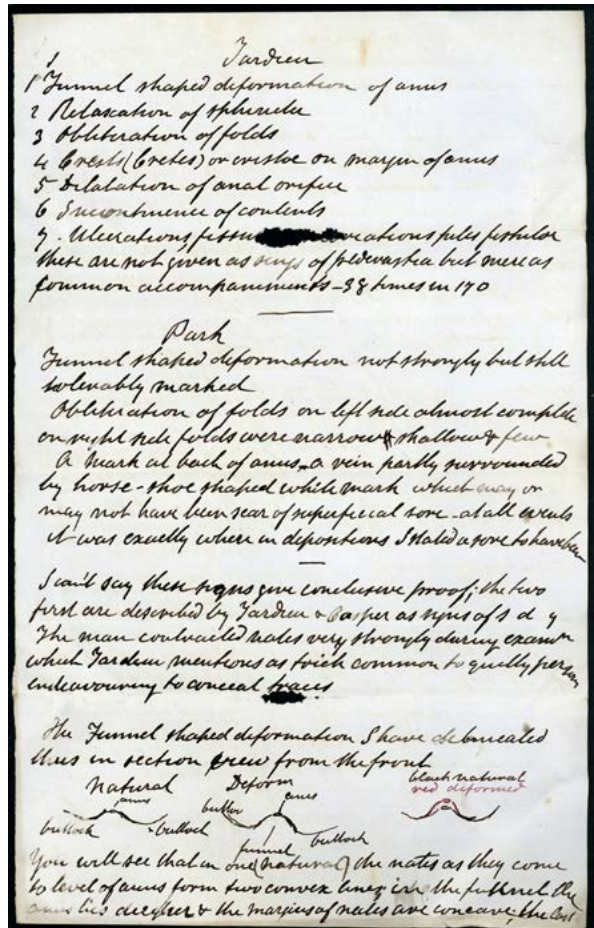 1 Tardieu
1 Funnel shaped deformation of anus
2 Relaxation of sphincter
3 Obliteration of folds
4 Crests (Cretes) or cristae on margin of anus
5 Dilatation of anal orifice
6 Incontinence of contents
7. Ulcerations fissu ations piles fistulae
these are not given as signs of pederastia but mere as
common accompaniments - 38 times in 170
Park
Funnel shaped deformation not strongly but still
tolerably marked
Obliteration of folds on left side almost complete
on right side folds were narrow shallow & few
A mark at back of anus - a vein partly surrounded
by horse-shoe shaped white mark which may or
may not have been scar of superficial sore - at all events
it was exactly where in depositions I stated a sore to have been
I can't say these signs give conclusive proof; the two
first are described by Tardieu & Casper as signs of s d y
The man contracted nates very strongly during examn
which Tardieu mentions as trick common to guilty person
endeavouring to conceal traces
The Funnel shaped deformation I have delineated
thus in section view from the front
natural Deform black natural
anus anus red deformed
buttock buttock buttock buttock
funnel
You will see that in one (natural) the nates as they come
to level of anus form two convex lines in the funnel the
anus lies deeper & the margins of nates are concave; the last